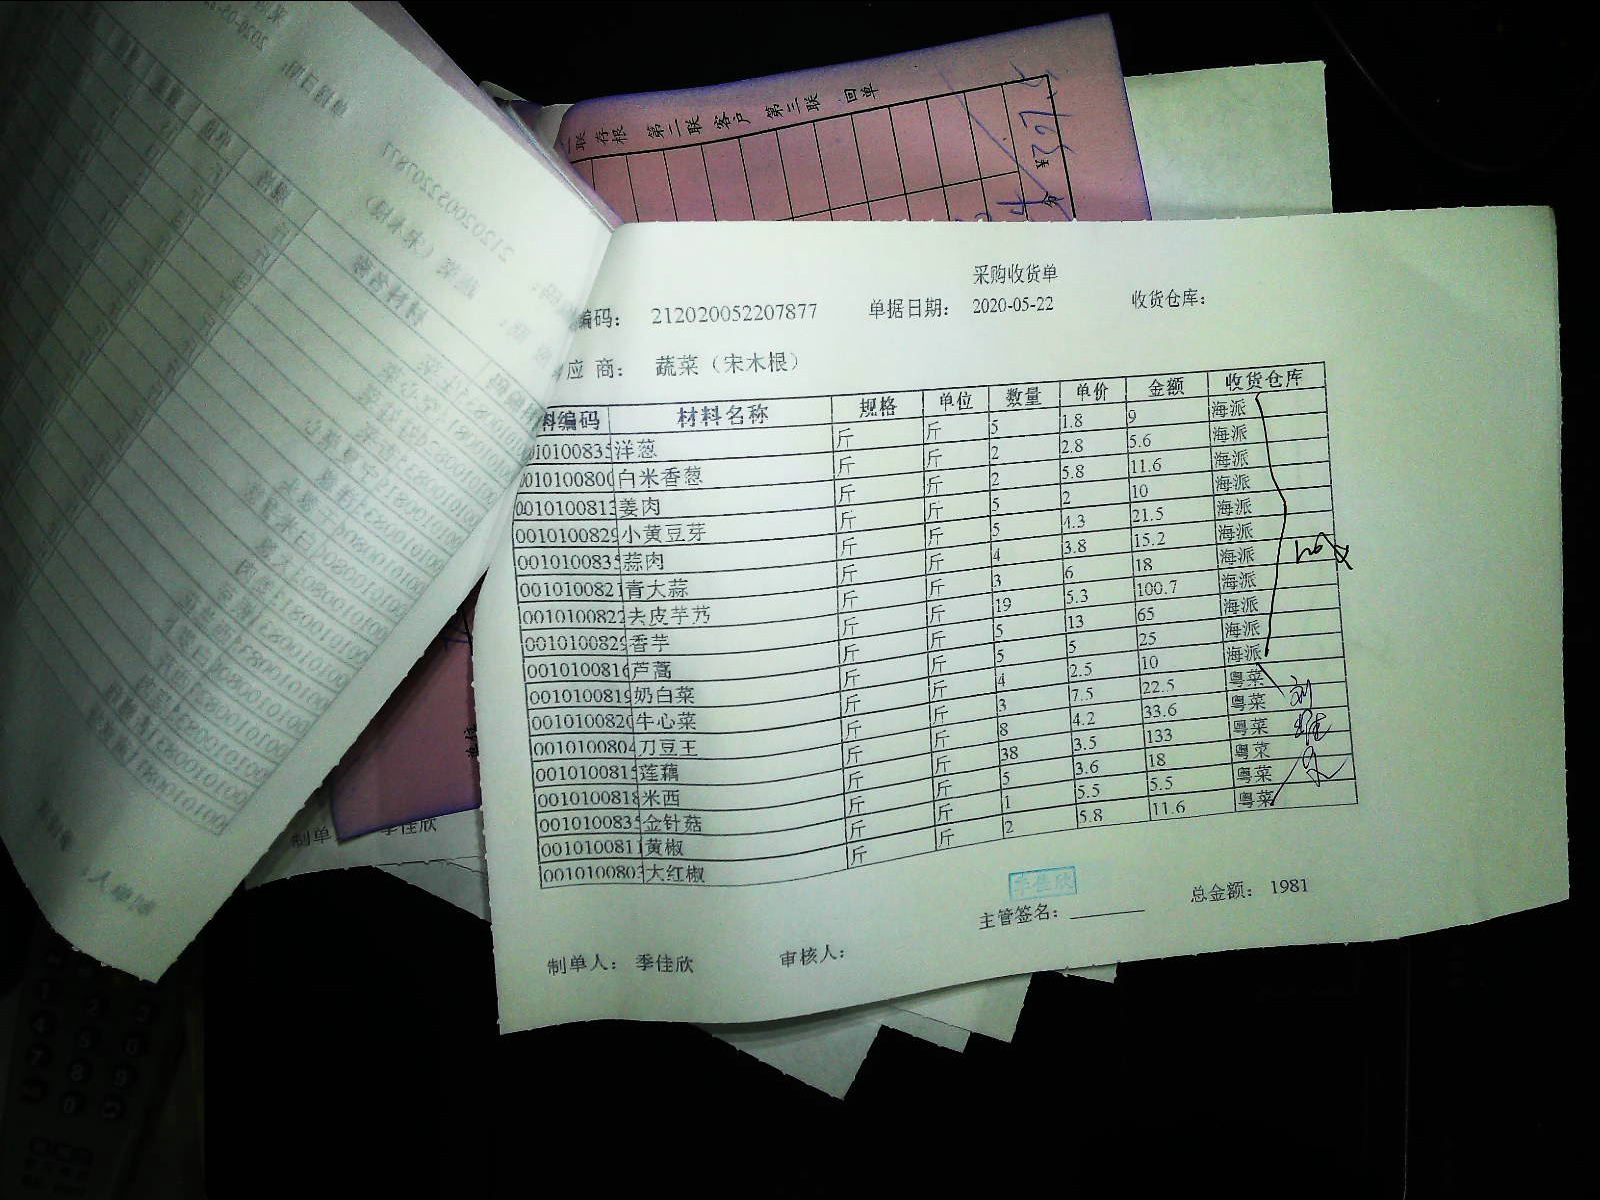 第二联 客户 第三联 回单
采购收货单
编码： 212020052207877 单据日期： 2020-05-22 收货仓库：
应 商： 蔬菜（宋木根）
料编码 材料名称 规格 单位 数量 单价 金额 收货仓库
0010100835 洋葱 斤 斤 5 1.8 9 海派
0010100800 白米香葱 斤 斤 2 2.8 5.6 海派
0010100813 姜肉 斤 斤 2 5.8 11.6 海派
0010100829 小黄豆芽 斤 斤 5 2 10 海派
0010100835 蒜肉 斤 斤 5 4.3 21.5 海派
0010100821 青大蒜 斤 斤 4 3.8 15.2 海派
0010100822 去皮芋艿 斤 斤 3 6 18 海派
0010100829 香芋 斤 斤 19 5.3 100.7 海派
0010100816 芦蒿 斤 斤 5 13 65 海派
0010100819 奶白菜 斤 斤 5 5 25 海派
0010100820 牛心菜 斤 斤 4 2.5 10 海派
0010100804 刀豆王 斤 斤 3 7.5 22.5 粤菜
0010100815 莲藕 斤 斤 8 4.2 33.6 粤菜
0010100818 米西 斤 斤 38 3.5 133 粤菜
0010100835 金针菇 斤 斤 5 3.6 18 粤菜
0010100811 黄椒 斤 斤 1 5.5 5.5 粤菜
0010100803 大红椒 斤 斤 2 5.8 11.6 粤菜
季佳欣
主管签名： 总金额： 1981
制单人： 季佳欣 审核人：
制单 季佳欣